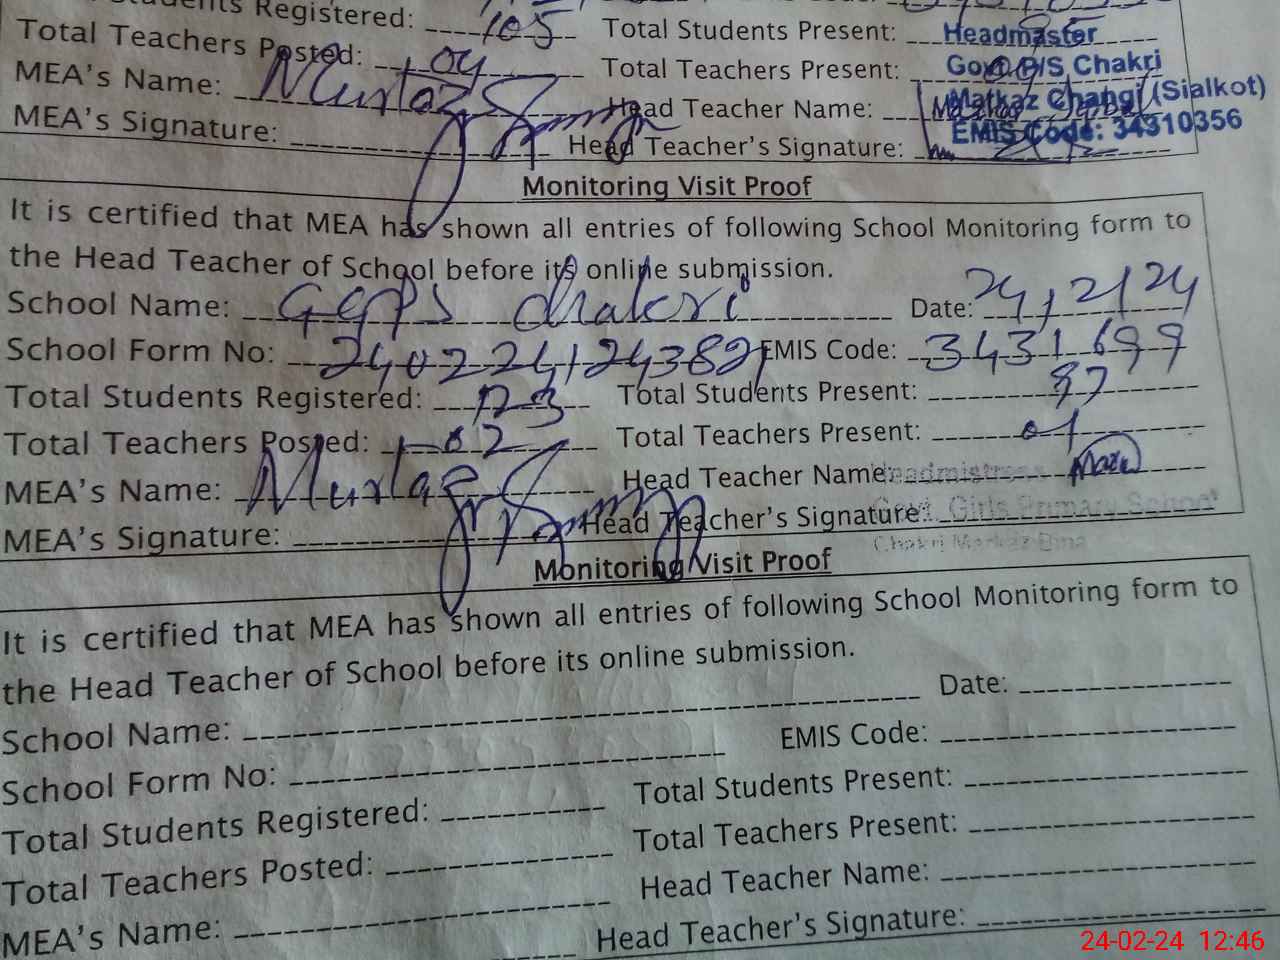 Students Registered: 105 Total Students Present:
Total Teachers Posted: 04 Total Teachers Present:
Headmaster
Govt P/S Chakri
Markaz Changi (Sialkot)
EMIS Code: 34310356
MEA's Name: Murtaza Head Teacher Name:
MEA's Signature: Head Teacher's Signature:
Monitoring Visit Proof
It is certified that MEA has shown all entries of following School Monitoring form to
the Head Teacher of School before its online submission.
School Name: GGPS Chakri Date: 24/2/24
School Form No: EMIS Code: 3431699
Total Students Registered: 123 Total Students Present: 97
Total Teachers Posted: 02 Total Teachers Present: 01
MEA's Name: Murtaza Head Teacher Name:
Headmistress
Govt. Girls Primary School
MEA's Signature: Head Teacher's Signature:
Monitoring Visit Proof
It is certified that MEA has shown all entries of following School Monitoring form to
the Head Teacher of School before its online submission.
School Name: Date:
School Form No: EMIS Code:
Total Students Registered: Total Students Present:
Total Teachers Posted: Total Teachers Present:
MEA's Name: Head Teacher Name:
Head Teacher's Signature:
24-02-24 12:46